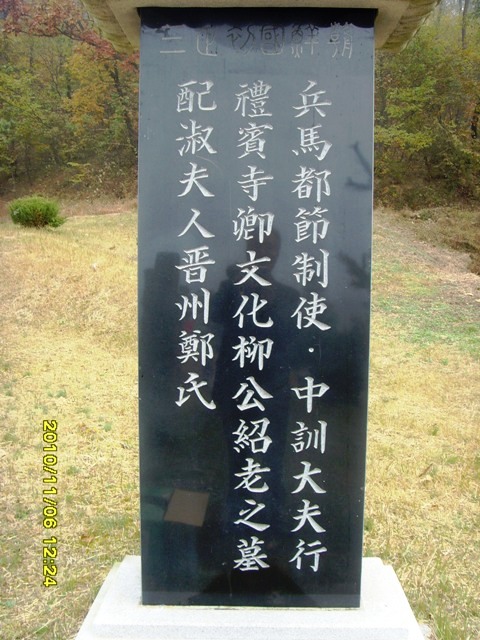 朝鮮國
兵馬都節制使·中訓大夫行
禮賓寺卿文化柳公紹老之墓
配淑夫人晋州鄭氏
2010/11/06 12:24